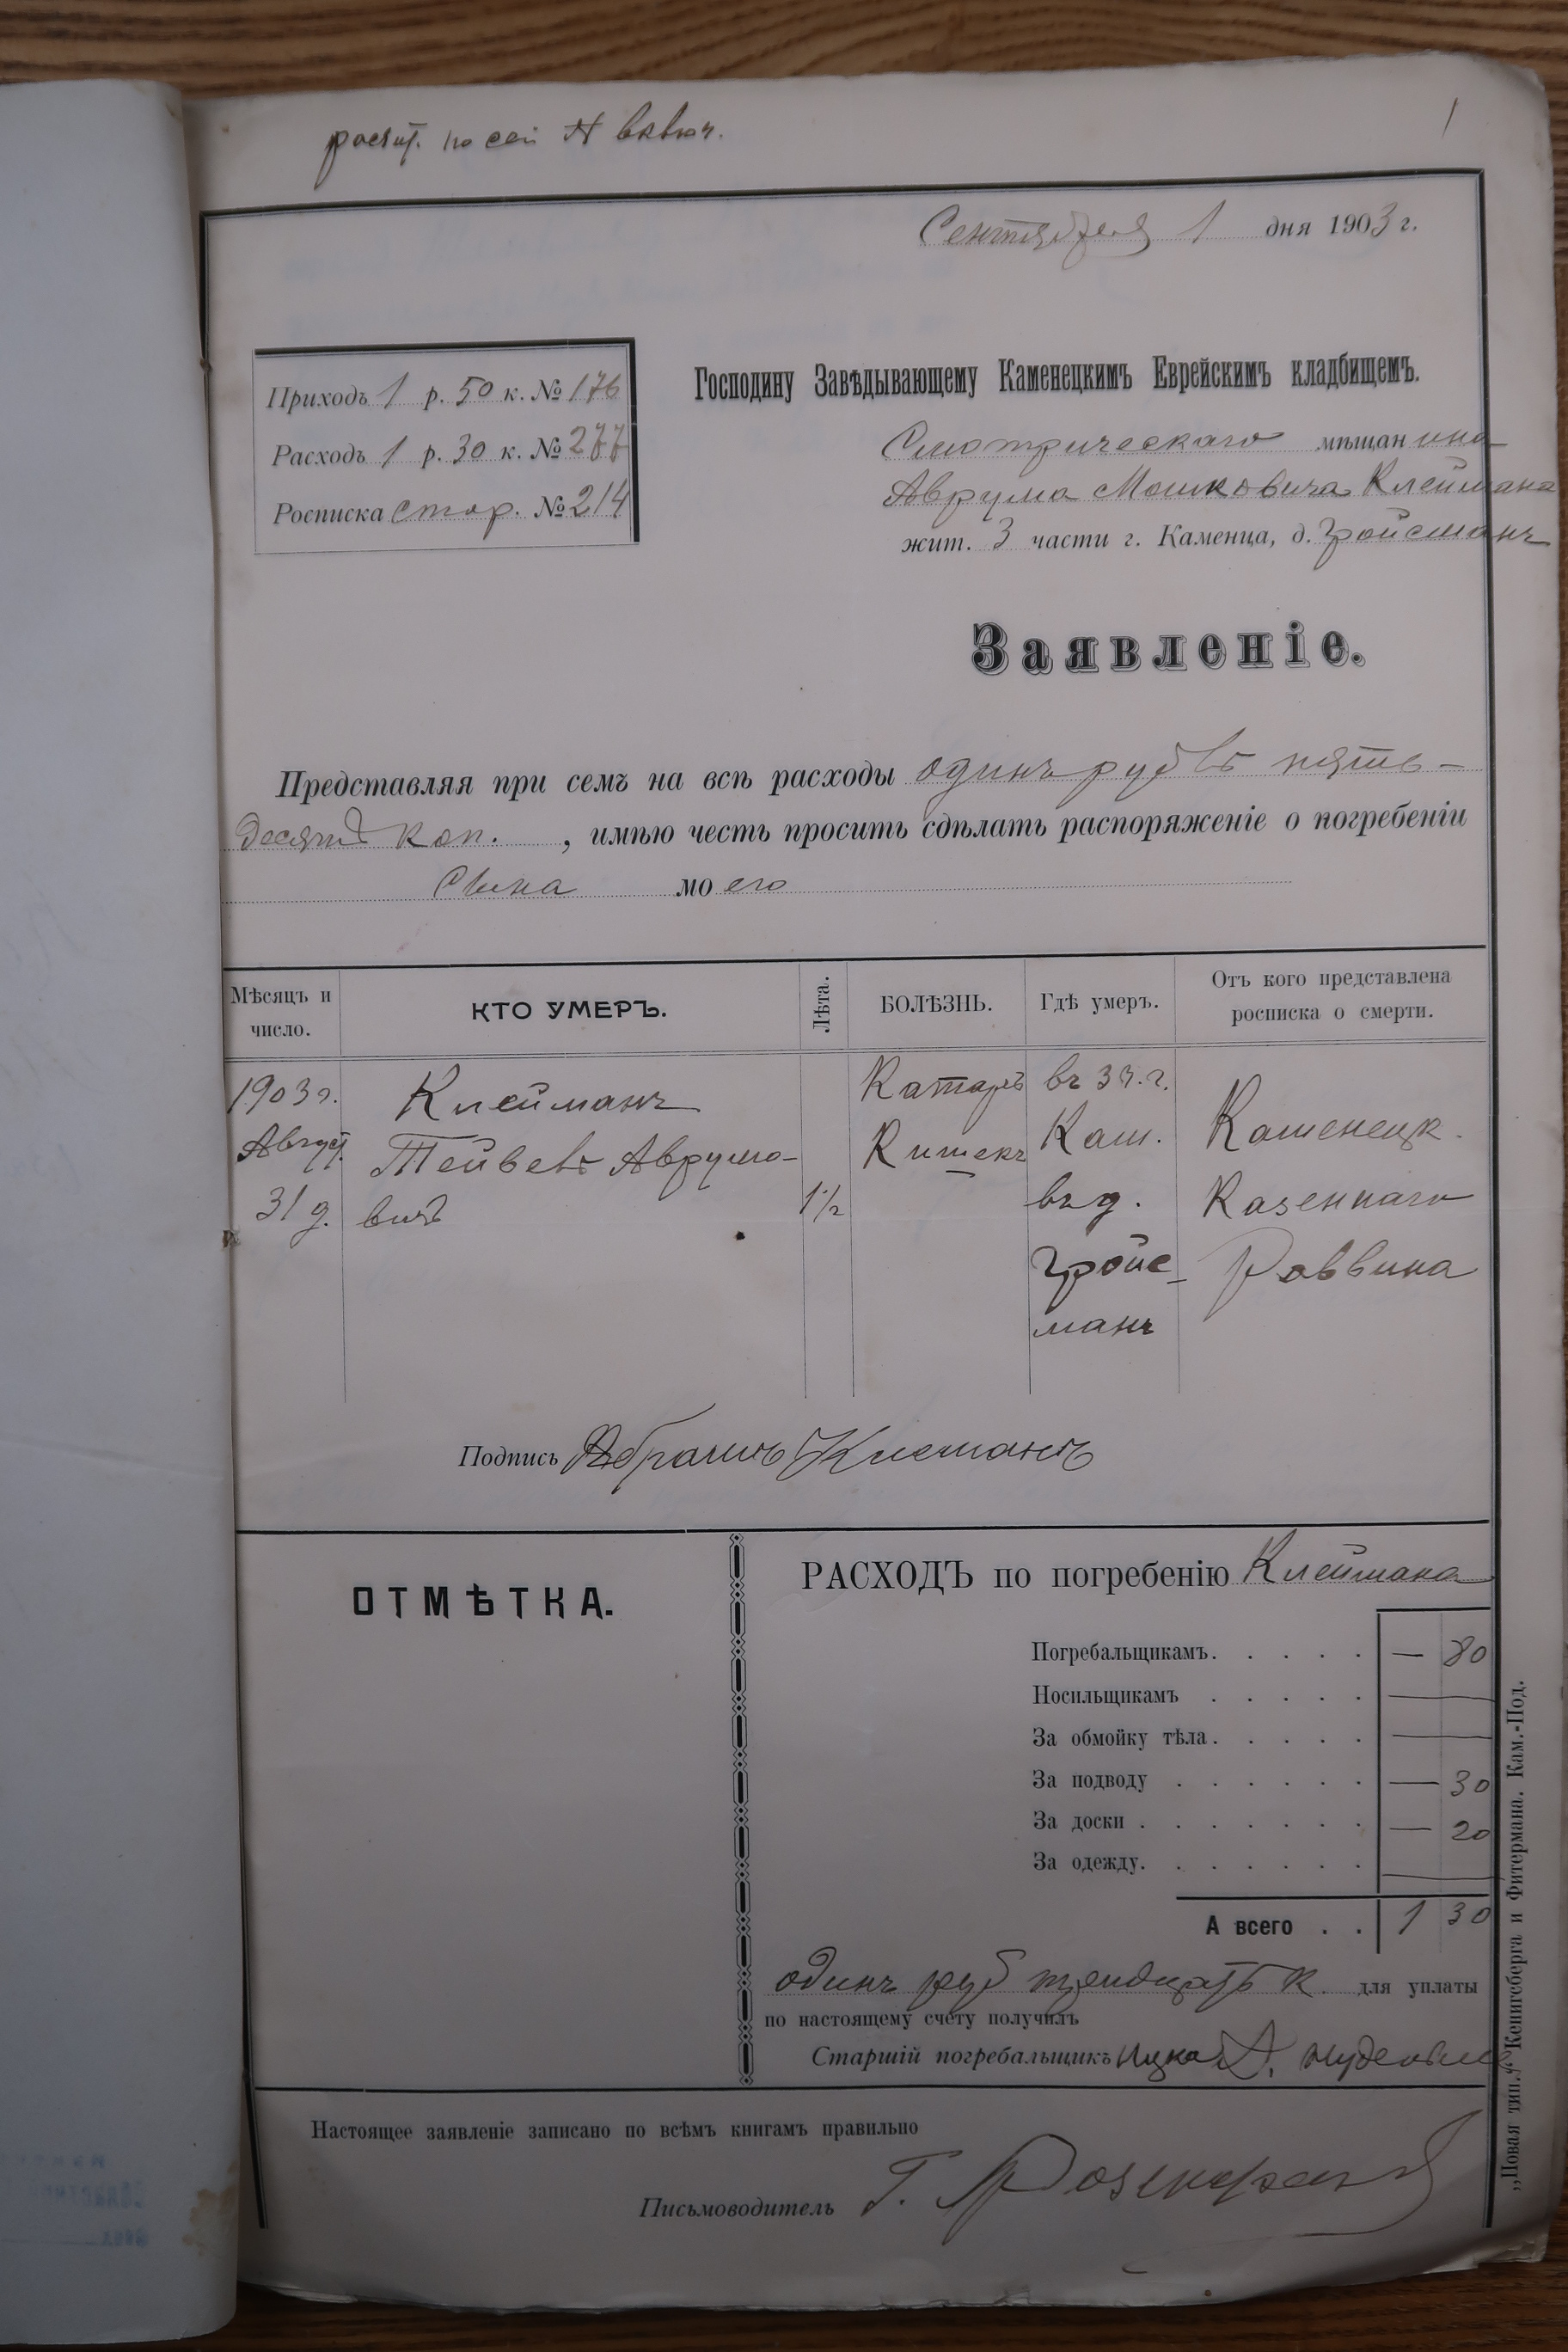 по сей № включ.
1
Сентября 1 дня 1903 г.
Приходъ 1 р. 50 к. № 176
Расходъ 1 р. 30 к. № 277
Росписка стар. № 214
Господину Завѣдывающему Каменецкимъ Еврейскимъ кладбищемъ.
Смотрическаго мѣщанина
Аврума Мошковича Клеймана
жит. 3 части г. Каменца, д. Гройсманъ
Заявленіе.
Представляя при семъ на всѣ расходы одинъ рубль пять-
десятъ коп., имѣю честь просить сдѣлать распоряженіе о погребеніи
сына моего
Мѣсяцъ и число.
КТО УМЕРЪ.
Лѣта.
БОЛѢЗНЬ.
Гдѣ умеръ.
Отъ кого представлена росписка о смерти.
1903 г. Август. 31 д.
Клейманъ
Тейвель Аврумо-
вичъ
1 1/2
Катаръ
Кишекъ
въ 3 ч. г.
Кам.
въ д.
Гройс-
манъ
Каменецк.
Казеннаго
Раввина
Подпись Абрамъ Клейманъ
ОТМѢТКА.
РАСХОДЪ по погребенію Клеймана
Погребальщикамъ. . . . . — 80
Носильщикамъ . . . . . —
За обмойку тѣла. . . . . —
За подводу . . . . . . — 30
За доски . . . . . . . — 20
За одежду. . . . . . . —
А всего . . 1 30
одинъ руб тридцать к. для уплаты
по настоящему счету получилъ
Старшій погребальщикъ Ицко
Настоящее заявленіе записано по всѣмъ книгамъ правильно
Письмоводитель Г. Розенкранц
„Новая тип.“ Кенигсберга и Фитермана. Кам.-Под.